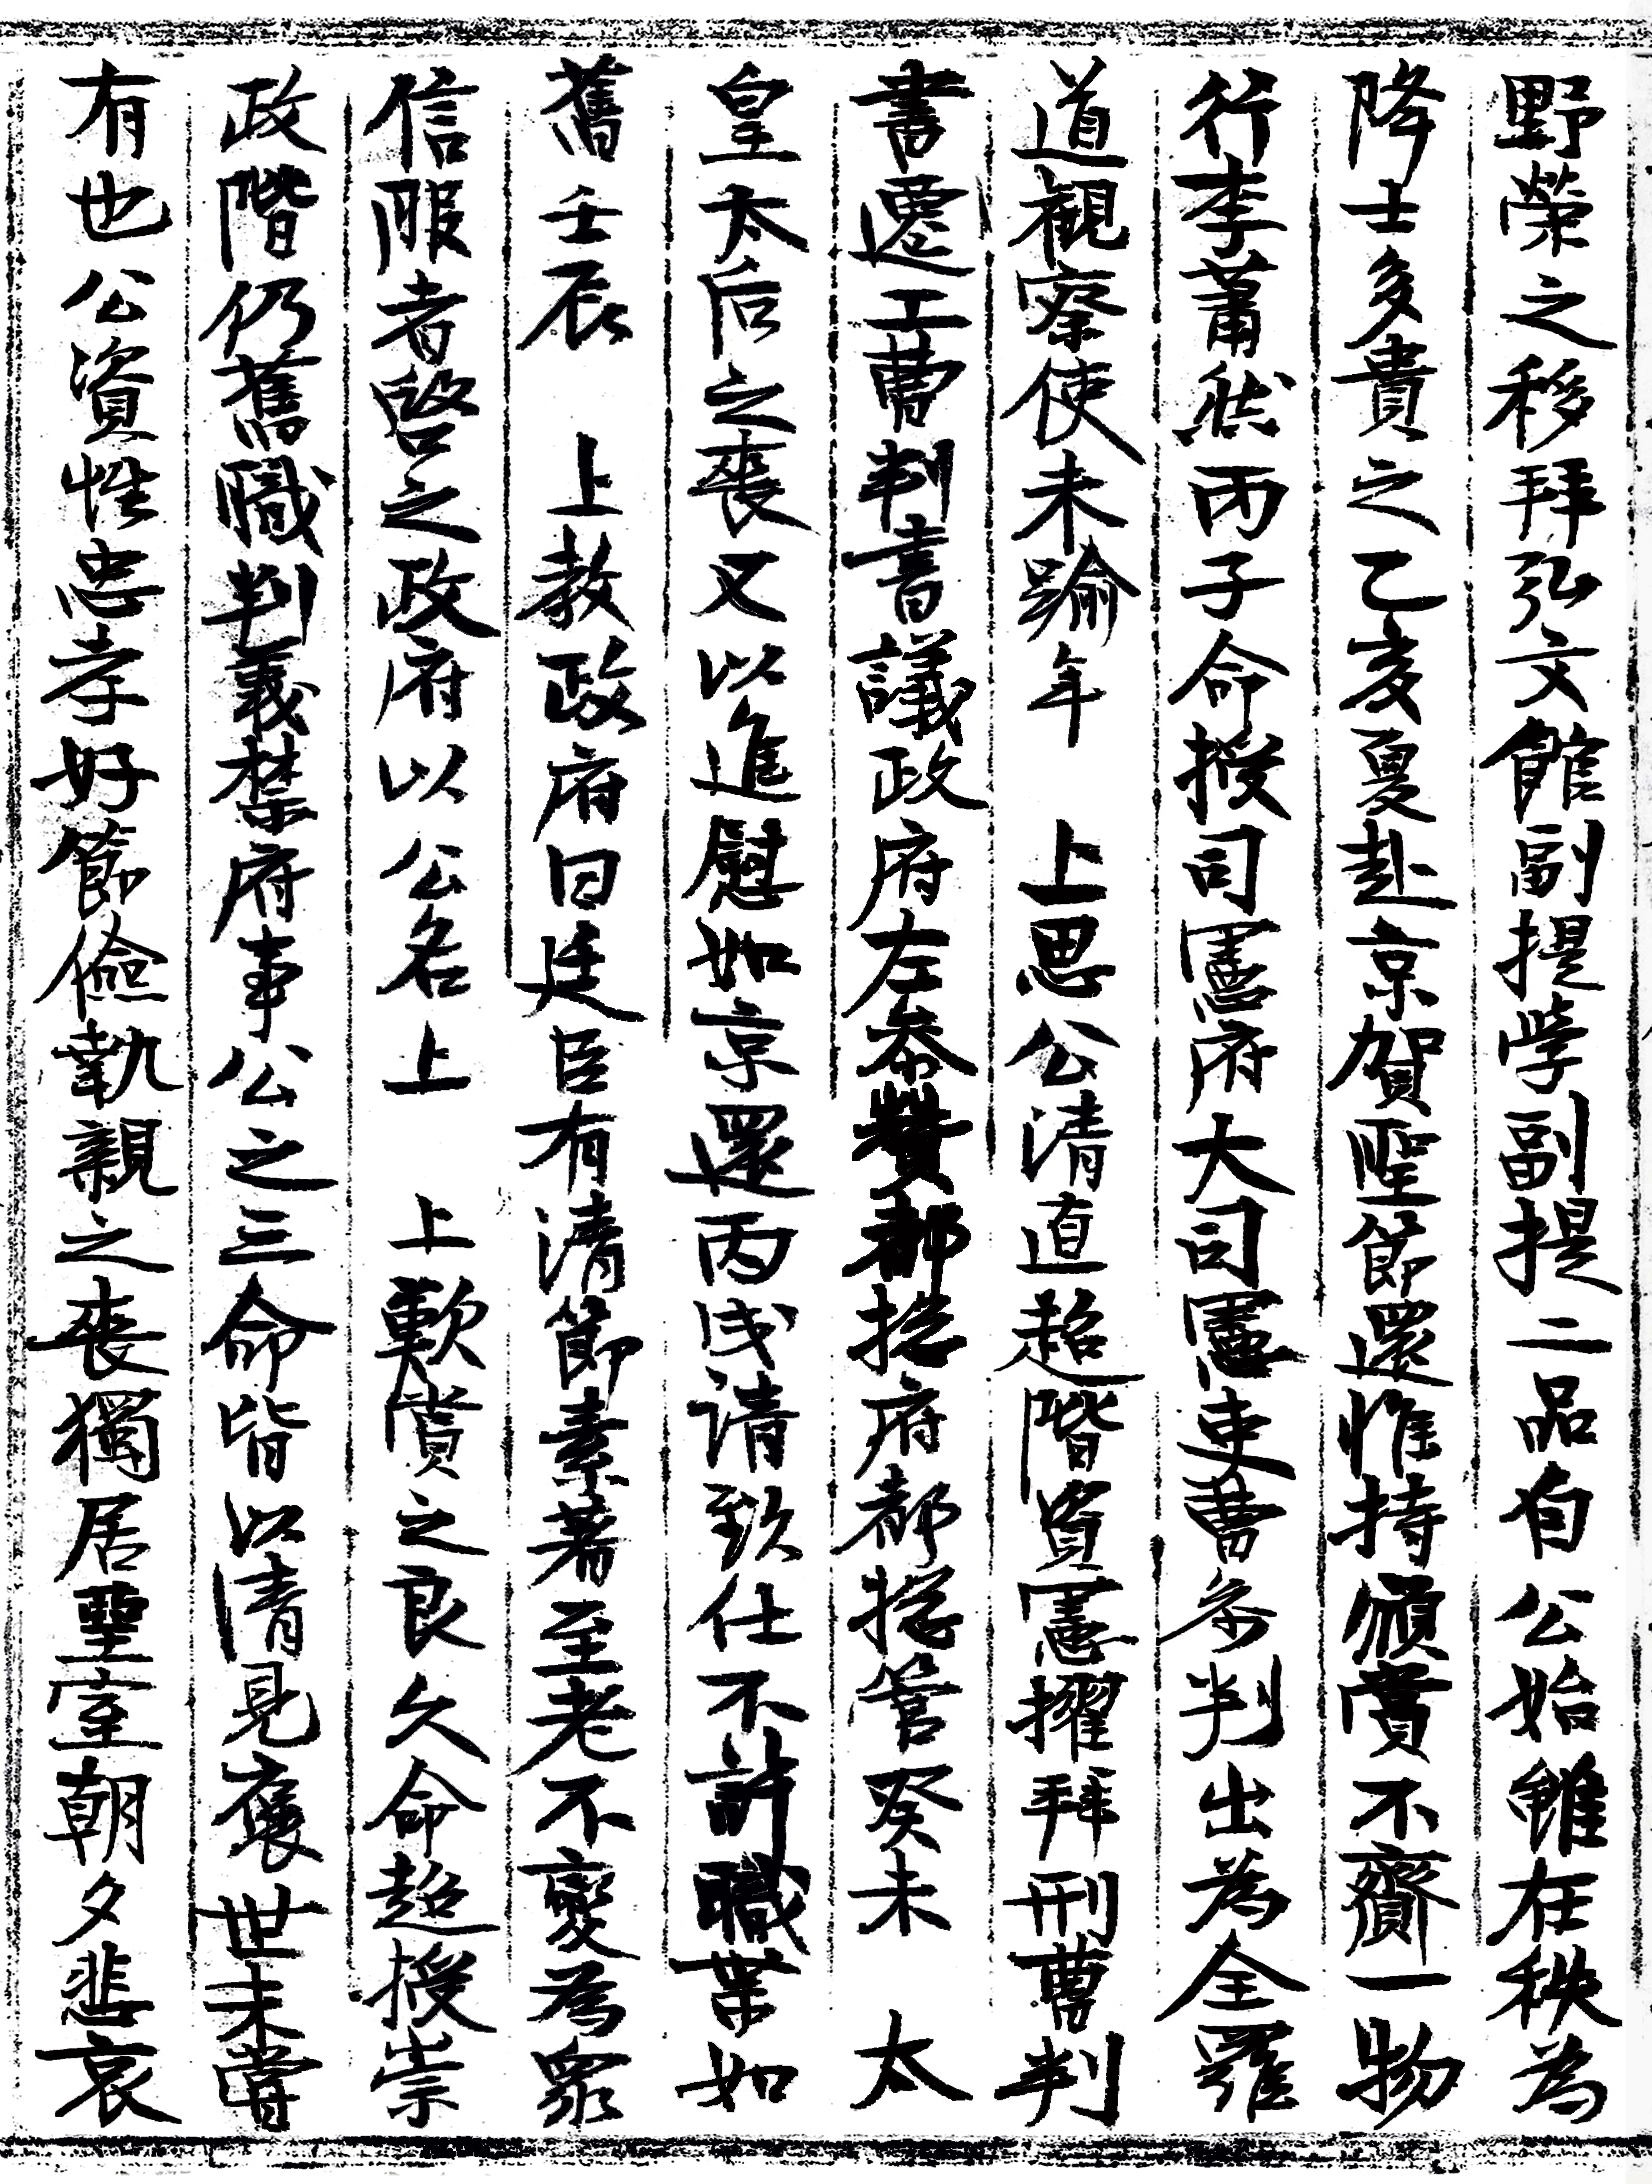 野榮之移拜弘文館副提學副提二品自公始雖在秩為
降士多貴之乙亥夏赴京賀聖節還惟持頒賞不齎一物
行李蕭然丙子命授司憲府大司憲吏曹参判出為全羅
道觀察使未踰年　上思公淸直超階資憲擢拜刑曹判
書遷工曹判書議政府左叅贊都捴府都捴管癸未　太
皇太后之喪又以進慰如京還丙戌請致仕不許職業如
舊壬辰　上敎政府曰廷臣有淸節素著至老不變為衆
信服者啓之政府以公名上　上歎賞之良久命超授崇
政階仍舊職判義禁府事公之三命皆以淸見褒世未嘗
有也公資性忠孝好節儉執親之喪獨居堊室朝夕悲哀